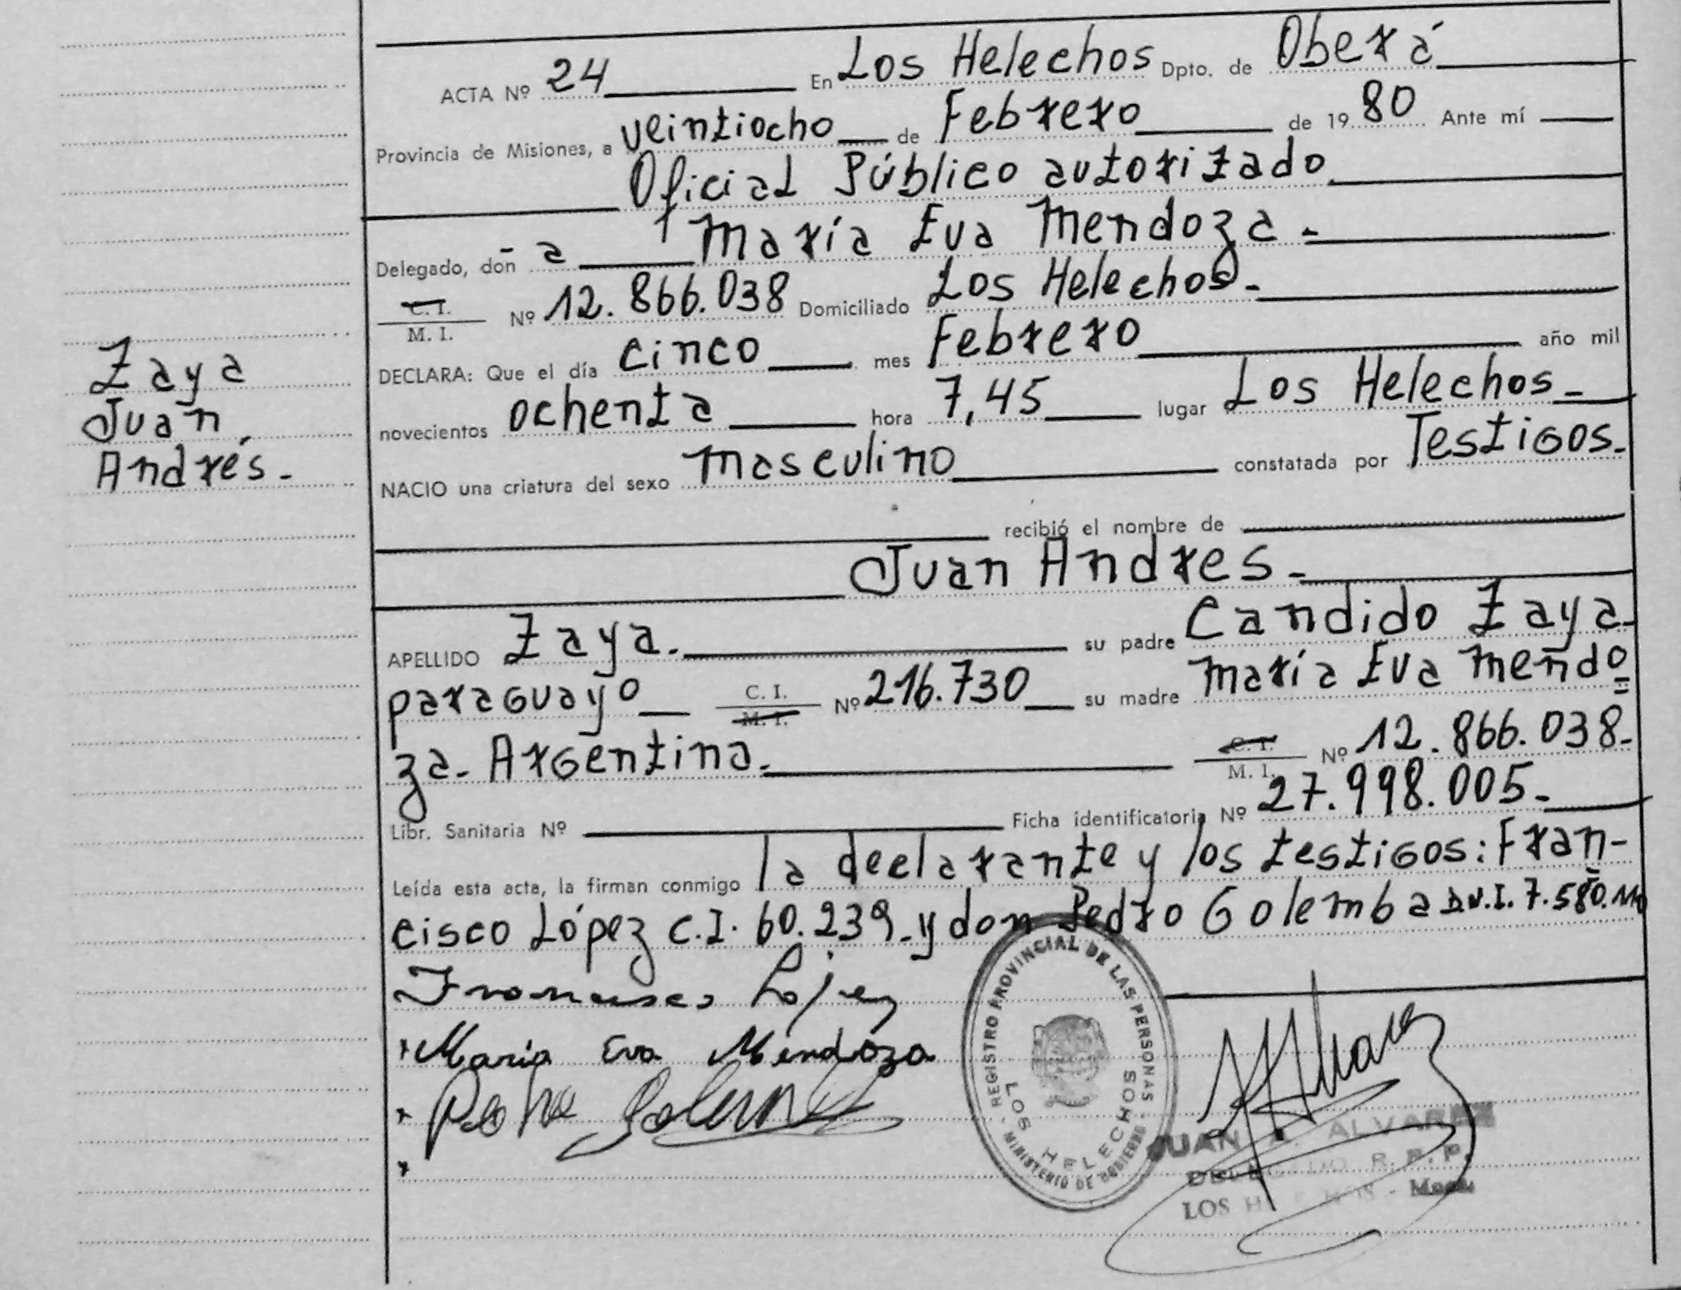 ACTA Nº 24 En Los Helechos Dpto. de Oberá
Provincia de Misiones, a veintiocho de Febrero de 1980 Ante mí
Oficial Público autorizado
Delegado, don a María Eva Mendoza.-
C. I. / M. I. Nº 12.866.038 Domiciliado Los Helechos.-
DECLARA: Que el día cinco mes Febrero año mil
novecientos ochenta hora 7,45 lugar Los Helechos-
NACIO una criatura del sexo masculino constatada por Testigos-
recibió el nombre de
Juan Andres-
APELLIDO Zaya.- su padre Candido Zaya-
paraguayo C. I. / M. I. Nº 216.730 su madre María Eva Mendo=
za- Argentina.- C. I. / M. I. Nº 12.866.038-
Libr. Sanitaria Nº Ficha identificatoria Nº 27.998.005-
Leída esta acta, la firman conmigo la declarante y los testigos: Fran-
cisco López C.I. 60.239 y don Pedro Golemba D.N.I. 7.580.110
Francisco López
María Eva Mendoza
Pedro Golemba
Zaya
Juan
Andrés-
REGISTRO PROVINCIAL DE LAS PERSONAS
LOS HELECHOS
MINISTERIO DE GOBIERNO
JUAN A. ALVAREZ
DELEGADO R. P. P.
LOS HELECHOS - Mnes.